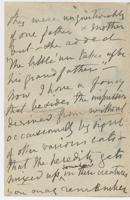 they were unquestionably
of one father & mother
but she added
The little'un takes after
his grandfather"
now I have a fancy
that besides the impressions
derived from without
occasionally by sight
of other various cats
that the heredity gets
mixed up, in these creatures
you may remember